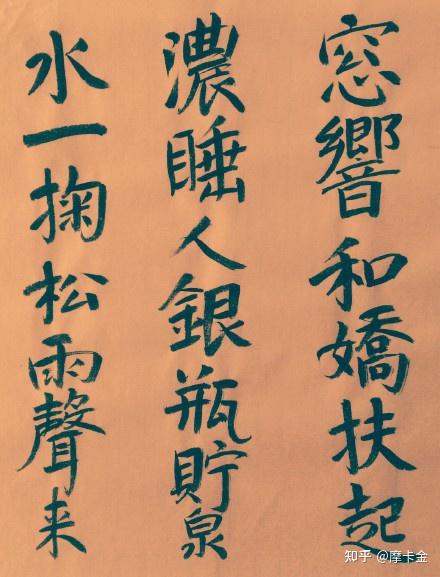 窓響和嬌扶起
濃睡人銀瓶貯泉
水一掬松雨聲来
知乎 @摩卡金